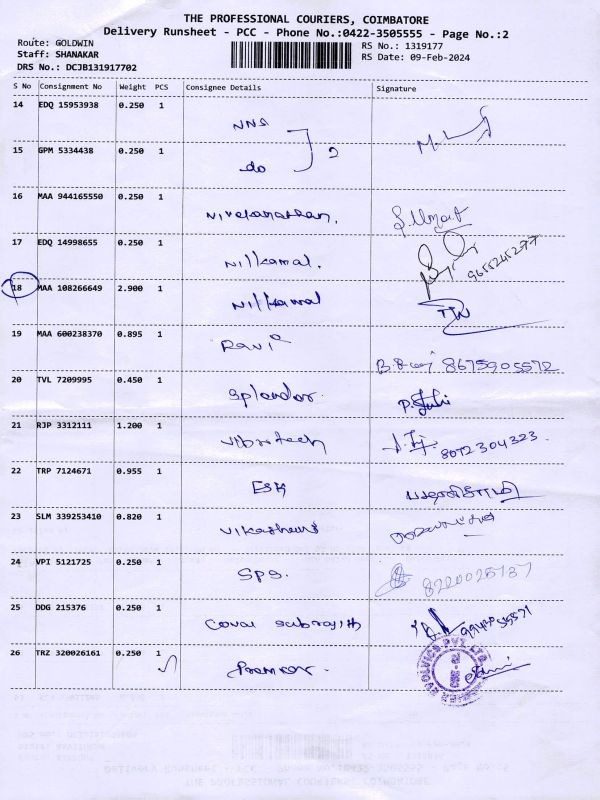 THE PROFESSIONAL COURIERS, COIMBATORE
Delivery Runsheet - PCC - Phone No.:0422-3505555 - Page No.:2
Route: GOLDWIN
Staff: SHANAKAR
DRS No.: DCJB131917702
RS No.: 1319177
RS Date: 09-Feb-2024
S No Consignment No Weight PCS Consignee Details Signature
14 EDQ 15953938 0.250 1 NNS
15 GPM 5334438 0.250 1 do 2
16 MAA 944165550 0.250 1
17 EDQ 14998655 0.250 1 Nilkamal. 9655245277
18 MAA 108266649 2.900 1 Nilkamal
19 MAA 600238370 0.895 1 Ravi 8675905572
20 TVL 7209995 0.450 1 Splendor.
21 RJP 3312111 1.200 1 Vibrotech 8072304323.
22 TRP 7124671 0.955 1 பழனிசாமி
23 SLM 339253410 0.820 1
24 VPI 5121725 0.250 1 SPS. 8220025137
25 DDG 215376 0.250 1 Covai
26 TRZ 320026161 0.250 1